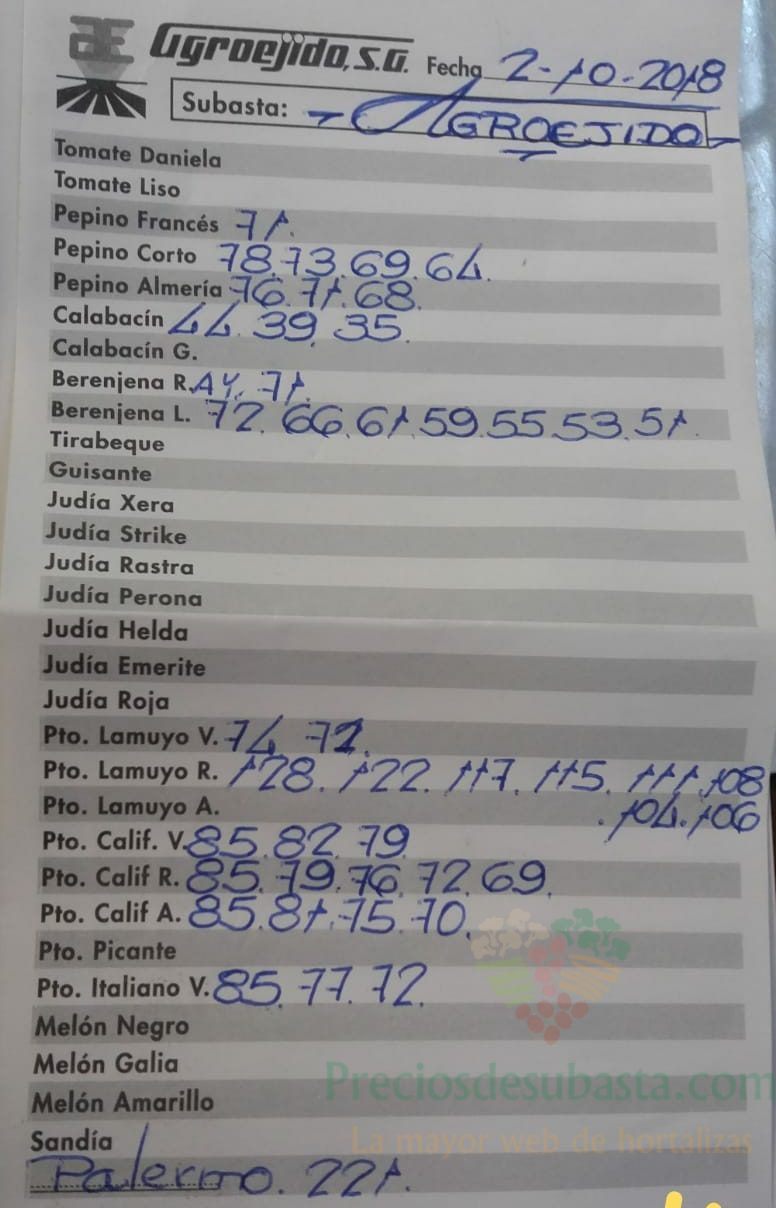 Æ Agroejido, S.A. Fecha 2-10-2018
Subasta: - AGROEJIDO -
Tomate Daniela
Tomate Liso
Pepino Francés 71.
Pepino Corto 78.73.69.64.
Pepino Almería 76.71.68.
Calabacín 44.39.35.
Calabacín G.
Berenjena R. AY. 71.
Berenjena L. 72.66.61.59.55.53.51.
Tirabeque
Guisante
Judía Xera
Judía Strike
Judía Rastra
Judía Perona
Judía Helda
Judía Emerite
Judía Roja
Pto. Lamuyo V. 74 72.
Pto. Lamuyo R. 128. 122. 117. 115. 111.108
Pto. Lamuyo A. .104.106
Pto. Calif. V. 85.82.79
Pto. Calif R. 85.79.76.72.69.
Pto. Calif A. 85.81.75.70.
Pto. Picante
Pto. Italiano V. 85.77.72.
Melón Negro
Melón Galia
Melón Amarillo
Preciosdesubasta.com
Sandía
La mayor web de hortalizas
Palermo. 221.